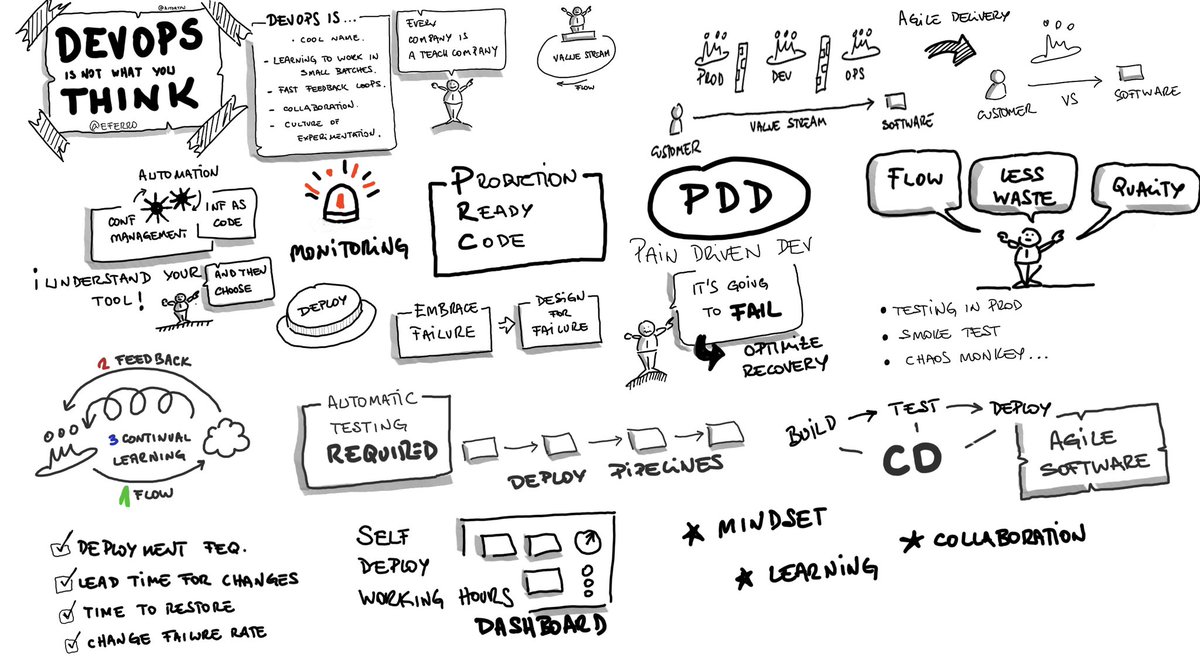 DEVOPS
IS NOT WHAT YOU
THINK
@EFERRO
DEVOPS IS...
· COOL NAME.
- LEARNING TO WORK IN
SMALL BATCHES.
- FAST FEEDBACK LOOPS.
- COLLABORATION.
- CULTURE OF
EXPERIMENTATION.
EVERY
COMPANY IS
A TEACH COMPANY
VALUE STREAM
FLOW
PROD
DEV
OPS
CUSTOMER
VALUE STREAM
SOFTWARE
AGILE DELIVERY
CUSTOMER
VS
SOFTWARE
AUTOMATION
CONF
MANAGEMENT
INF AS
CODE
¡UNDERSTAND YOUR
TOOL!
AND THEN
CHOOSE
MONITORING
DEPLOY
PRODUCTION
READY
CODE
EMBRACE
FAILURE
DESIGN
FOR
FAILURE
PDD
PAIN DRIVEN DEV
IT'S GOING
TO FAIL
OPTIMIZE
RECOVERY
FLOW
LESS
WASTE
QUALITY
• TESTING IN PROD
• SMOKE TEST
• CHAOS MONKEY...
2 FEEDBACK
3 CONTINUAL
LEARNING
1 FLOW
AUTOMATIC
TESTING
REQUIRED
DEPLOY PIPELINES
BUILD
TEST
DEPLOY
CD
AGILE
SOFTWARE
DEPLOYMENT FEQ.
LEAD TIME FOR CHANGES
TIME TO RESTORE
CHANGE FAILURE RATE
SELF
DEPLOY
WORKING HOURS
DASHBOARD
* MINDSET
* LEARNING
* COLLABORATION